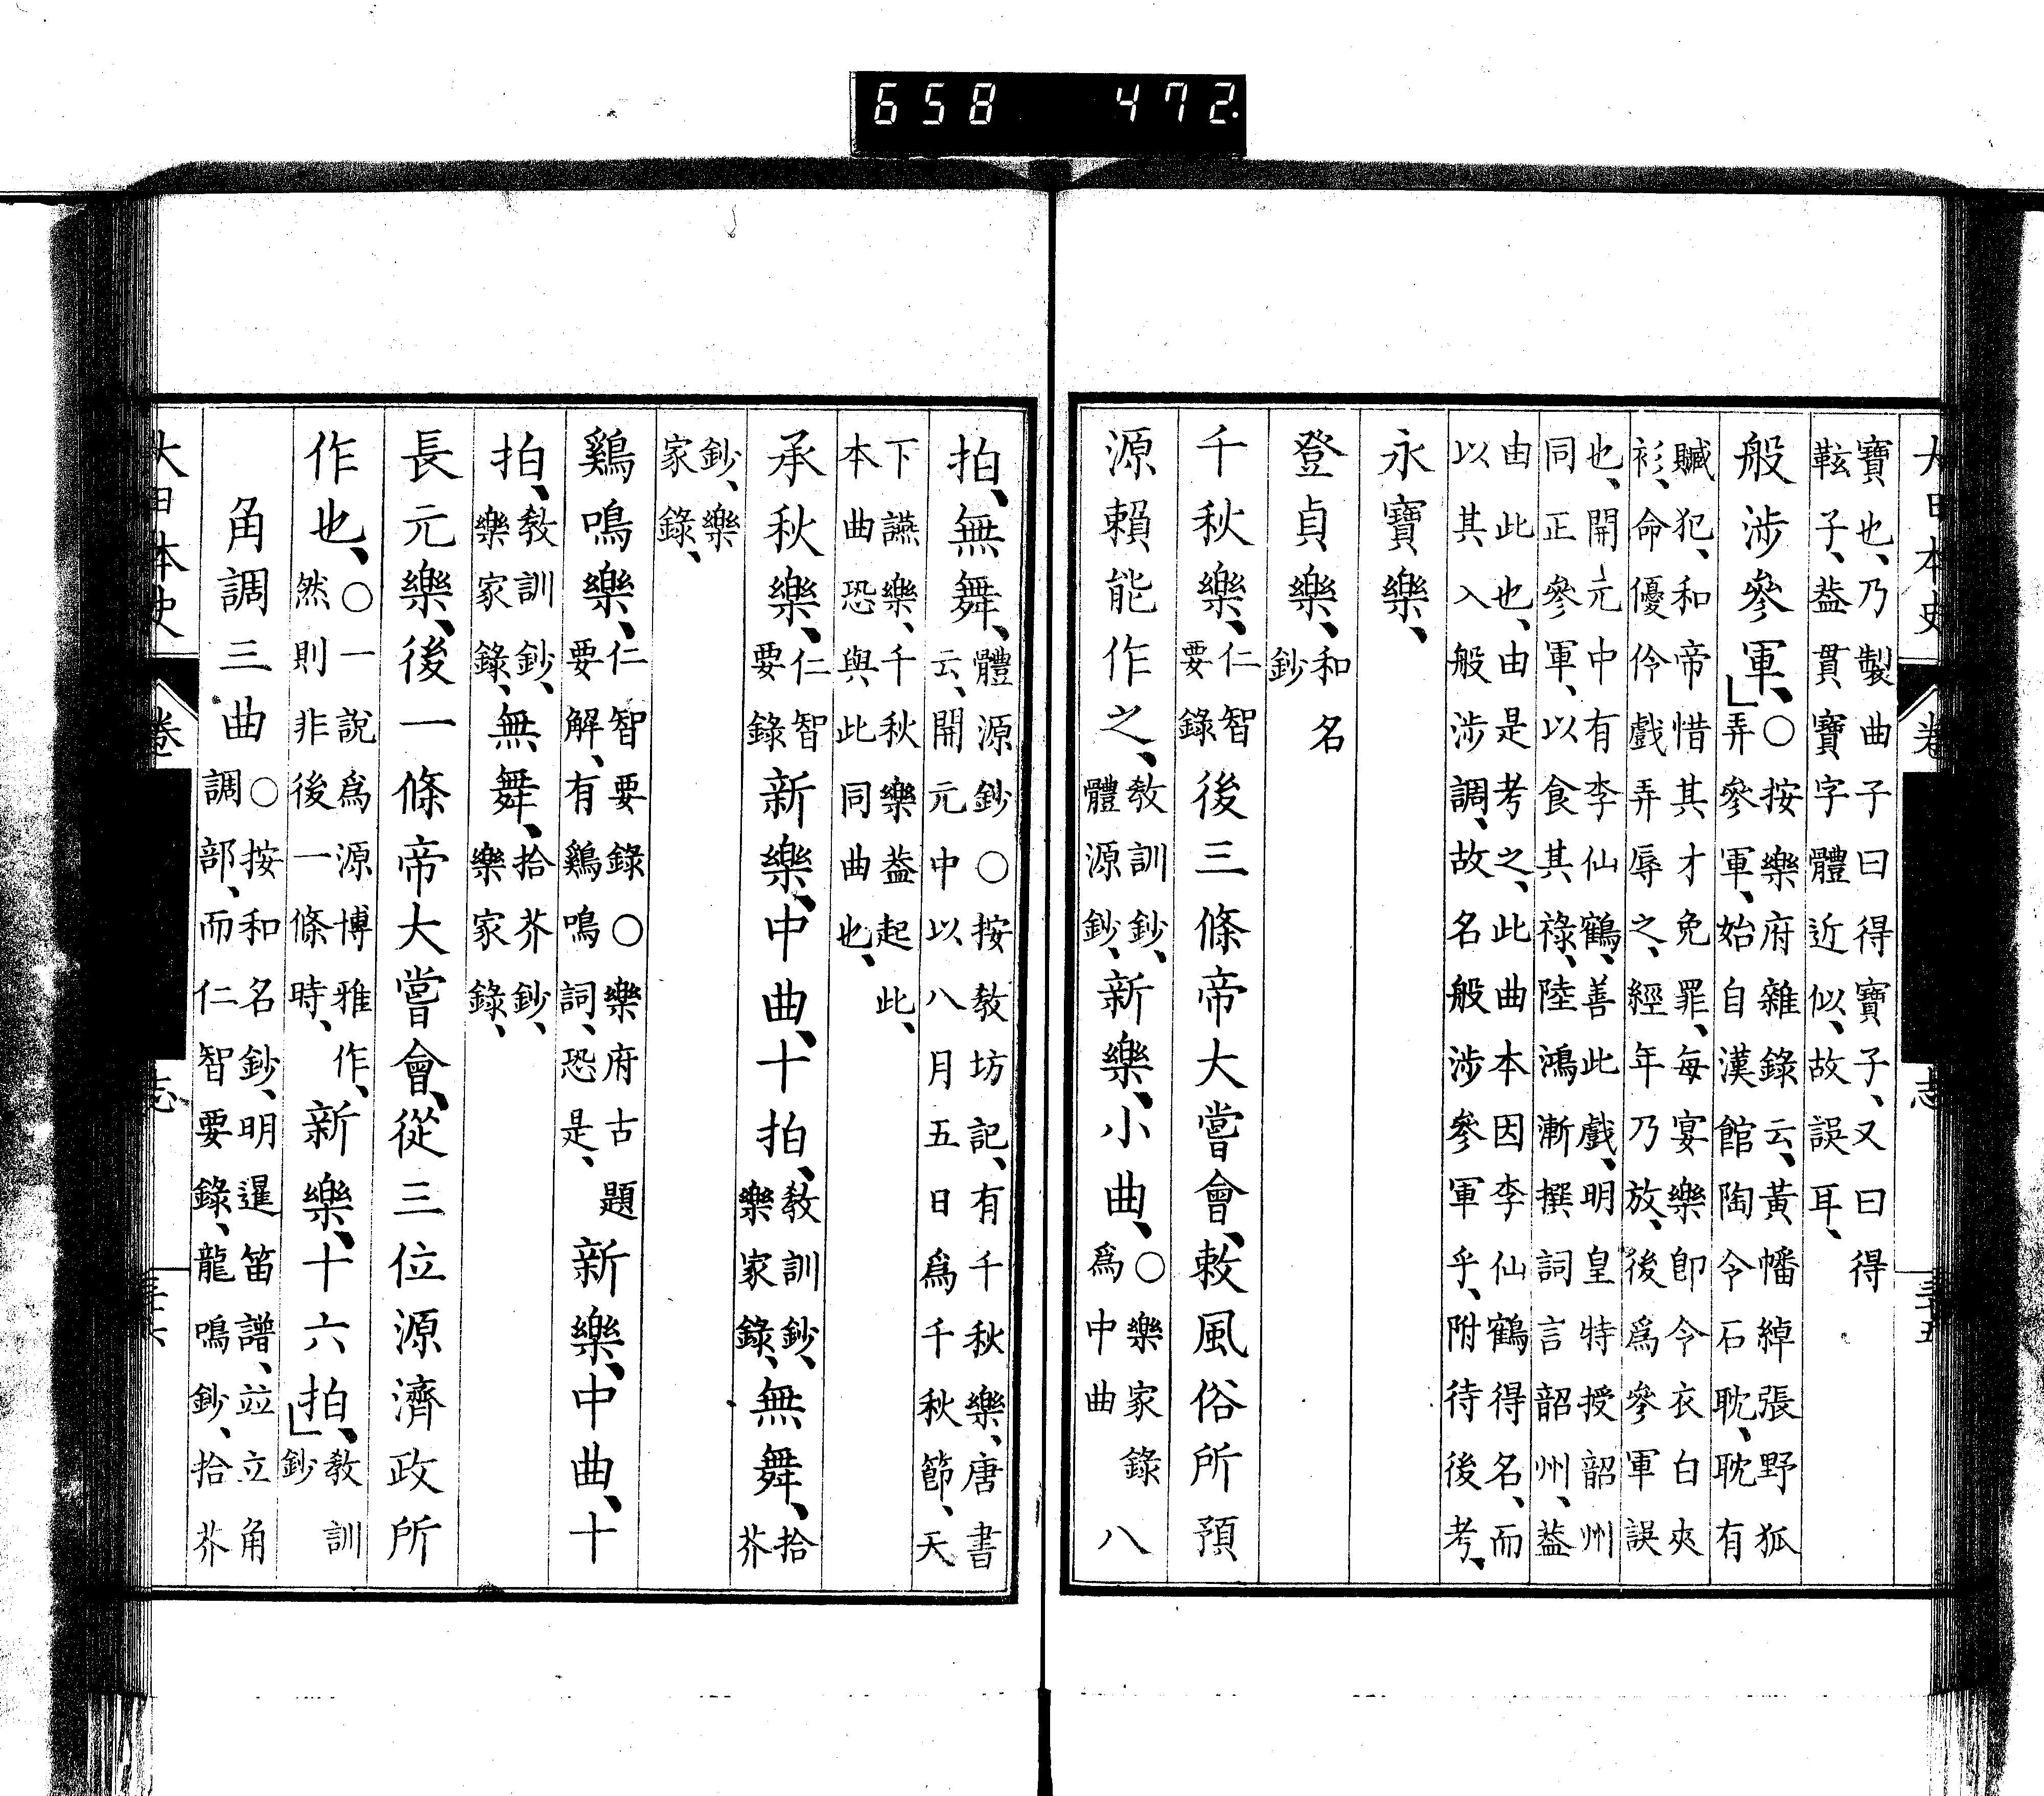 658 472.
大日本史 卷 志 三十五
寶也、乃製曲子曰得寶子、又曰得
鞍子、葢貫寶字體近似、故誤耳、
般涉參軍、○按樂府雜錄云、黃幡綽張野狐
弄參軍、始自漢館陶令石耽、耽有
贓犯、和帝惜其才免罪、每宴樂卽令衣白夾
衫、命優伶戲弄辱之、經年乃放、後爲參軍誤
也、開元中有李仙鶴、善此戲、明皇特授韶州
同正參軍、以食其祿、陸鴻漸撰詞言韶州、葢
由此也、由是考之、此曲本因李仙鶴得名、而
以其入般涉調、故名般涉參軍乎、附待後考、
永寶樂、
登貞樂、和名
鈔
千秋樂、仁智
要錄
後三條帝大嘗會、敕風俗所預
源賴能作之、敎訓鈔、
體源鈔、
新樂、小曲、○樂家錄
爲中曲
八
拍、無舞、體源鈔○按敎坊記、有千秋樂、唐書
云、開元中以八月五日爲千秋節、天
下讌樂、千秋樂葢起此、
本曲恐與此同曲也、
承秋樂、仁智
要錄
新樂、中曲、十拍、敎訓鈔、
樂家錄、
無舞、拾
芥
鈔、樂
家錄、
鷄鳴樂、仁智要錄○樂府古題
要解、有鷄鳴詞、恐是、
新樂、中曲、十
拍、敎訓鈔、
樂家錄、
無舞、拾芥鈔、
樂家錄、
長元樂、後一條帝大嘗會、從三位源濟政所
作也、○一說爲源博雅作、
然則非後一條時、
新樂、十六拍、敎訓
鈔
角調三曲○按和名鈔、明暹笛譜、竝立角
調部、而仁智要錄、龍鳴鈔、拾芥
大日本史 卷 志